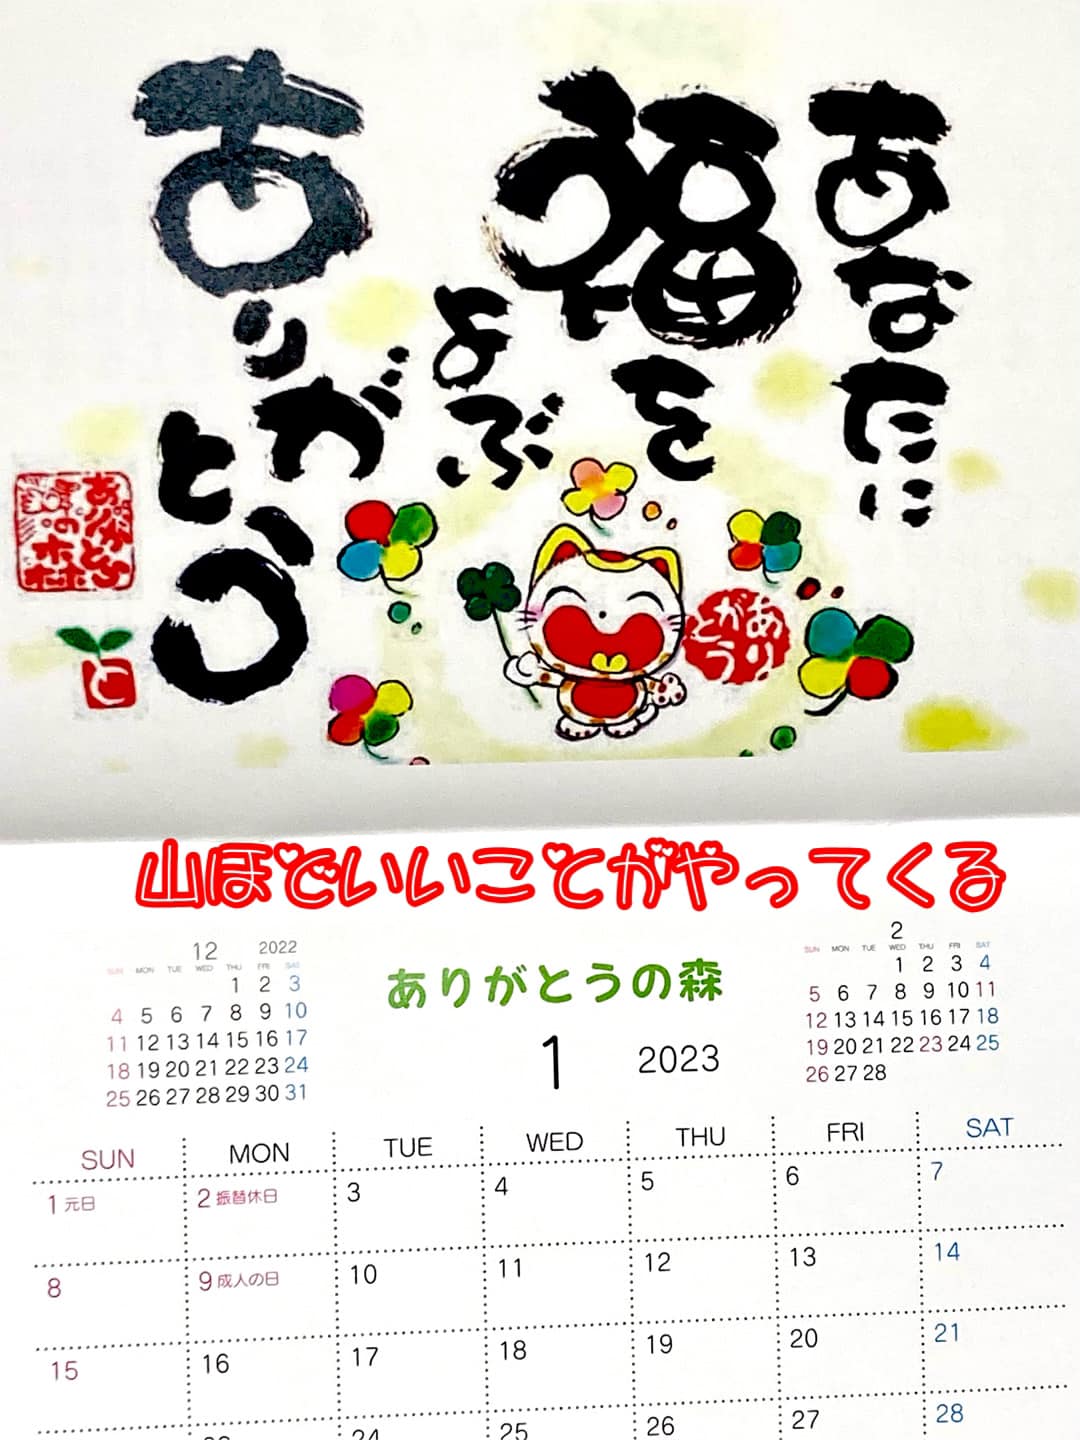 あなたに
福を
よぶ
ありがとう
ありがとう
ありがとうの森
山ほどいいことがやってくる
12 2022
SUN MON TUE WED THU FRI SAT
1 2 3
4 5 6 7 8 9 10
11 12 13 14 15 16 17
18 19 20 21 22 23 24
25 26 27 28 29 30 31
ありがとうの森
1 2023
2
SUN MON TUE WED THU FRI SAT
1 2 3 4
5 6 7 8 9 10 11
12 13 14 15 16 17 18
19 20 21 22 23 24 25
26 27 28
SUN MON TUE WED THU FRI SAT
1 元日 2 振替休日 3 4 5 6 7
8 9 成人の日 10 11 12 13 14
15 16 17 18 19 20 21
24 25 26 27 28